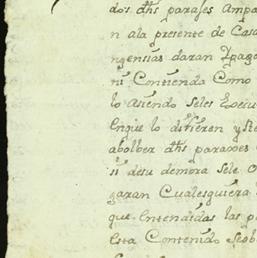 dos dhs parajes Ampa
n ala presente de Casa
ngensias daran Ypaga
ni Contienda Como
lo Asiendo Seles Execu
Enque lo difieren y Re
abolber dhs parajes
si desu demora Sele O
garan Cualesquiera
que Entendidas las p
Esta Contenido Seob